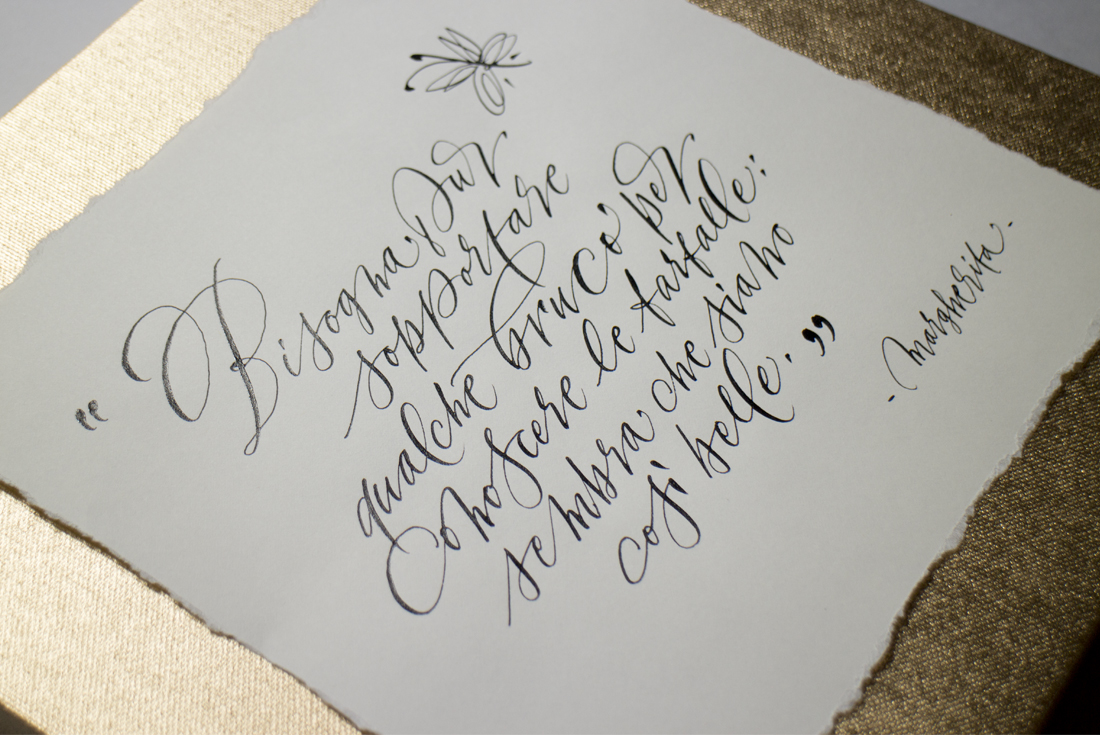 “ Bisogna pur
sopportare
qualche bruco per
conoscere le farfalle:
sembra che siano
così belle. ”
- Margherita -